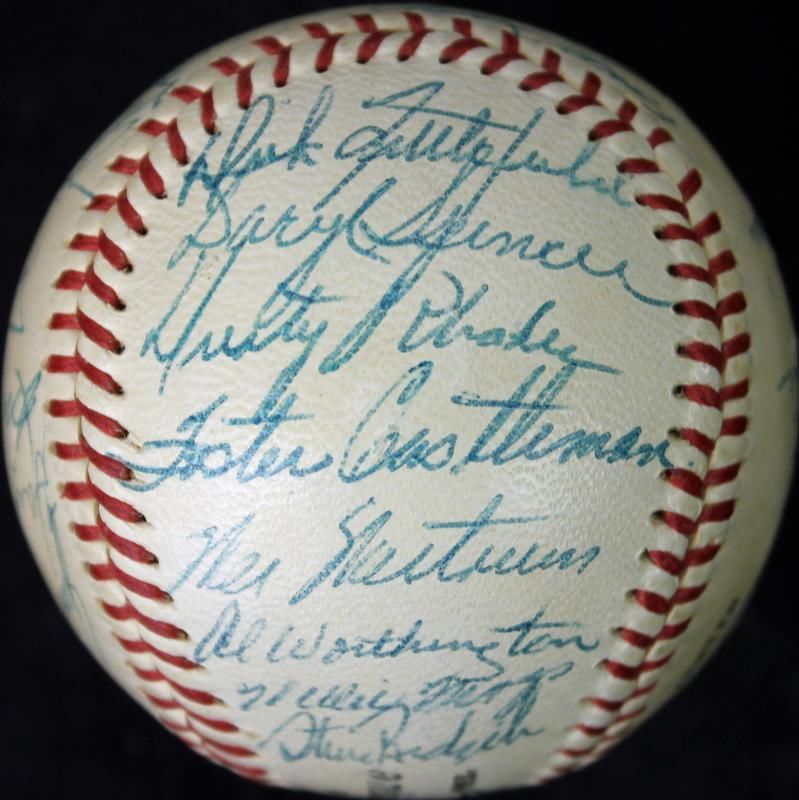 Dick Littlefield
Daryl Spencer
Dusty Rhodes
Foster Castleman
Wes Westrum
Al Worthington
Willie Mays
Steve Ridzik